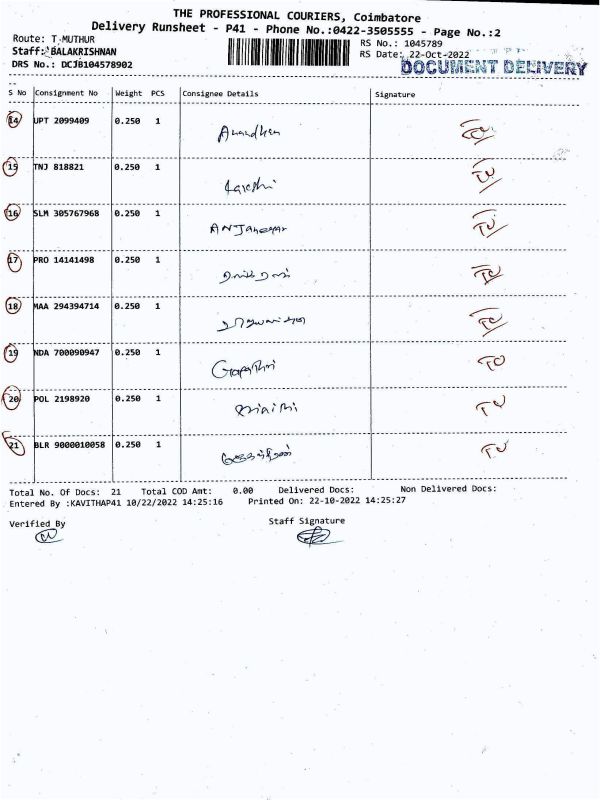 THE PROFESSIONAL COURIERS, Coimbatore
Delivery Runsheet - P41 - Phone No.:0422-3505555 - Page No.:2
Route: T-MUTHUR
RS No.: 1045789
Staff: BALAKRISHNAN
RS Date: 22-Oct-2022
DRS No.: DCJB104578902
DOCUMENT DELIVERY
S No Consignment No Weight PCS Consignee Details Signature
14 UPT 2099409 0.250 1 Anandhen
15 TNJ 818821 0.250 1
16 SLM 305767968 0.250 1
17 PRO 14141498 0.250 1
18 MAA 294394714 0.250 1
19 NDA 700090947 0.250 1
20 POL 2198920 0.250 1
21 BLR 9000010058 0.250 1
Total No. Of Docs: 21 Total COD Amt: 0.00 Delivered Docs: Non Delivered Docs:
Entered By :KAVITHAP41 10/22/2022 14:25:16 Printed On: 22-10-2022 14:25:27
Verified By Staff Signature